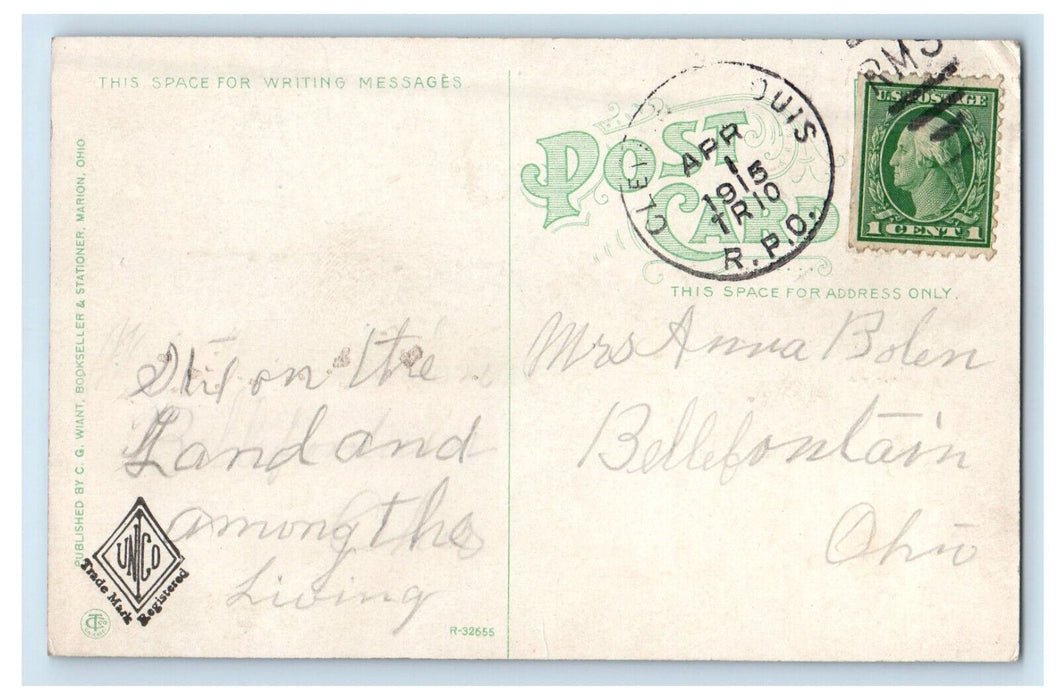 THIS SPACE FOR WRITING MESSAGES.
PUBLISHED BY C. G. WIANT, BOOKSELLER & STATIONER, MARION, OHIO
POST CARD
CLE OUIS
APR
1
1915
TR10
R.P.O.
RMS
U.S. POSTAGE
1 CENT 1
THIS SPACE FOR ADDRESS ONLY.
Mrs Anna Bolen
Bellefontain
Ohio
Stil on the
Land and
among the
Living
UNCO
Trade Mark Registered
R-32655